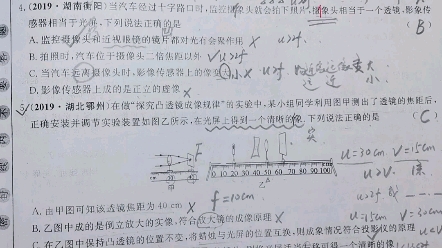 4. (2019·湖南衡阳)当汽车经过十字路口时,监控摄像头就会拍下照片,摄像头相当于一个透镜,影像传
感器相当于光屏,下列说法正确的是 ( B )
A. 监控摄像头和近视眼镜的镜片都对光有会聚作用 × u>2f
B. 拍照时,汽车位于摄像头二倍焦距以外 √ u>2f
C. 当汽车远离摄像头时,影像传感器上的像变大 小 ×
D. 影像传感器上成的是正立的虚像 ×
5. (2019·湖北鄂州)在做“探究凸透镜成像规律”的实验中,某小组同学利用图甲测出了透镜的焦距后,
正确安装并调节实验装置如图乙所示,在光屏上得到一个清晰的像。下列说法正确的是 ( C )
实
F
u=30cm v=15cm
0 10 20 30 40 50 60 70 80 90 100
乙
u>v
A. 由甲图可知该透镜焦距为 40 cm × f=10cm
u>2f
B. 乙图中成的是倒立放大的实像,符合放大镜的成像原理 ×
u=15cm v=30cm
C. 在乙图中保持凸透镜的位置不变,将蜡烛与光屏的位置互换,则成像情况符合投影仪的原理